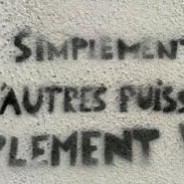 SIMPLEMENT
'AUTRES PUISS
PLEMENT